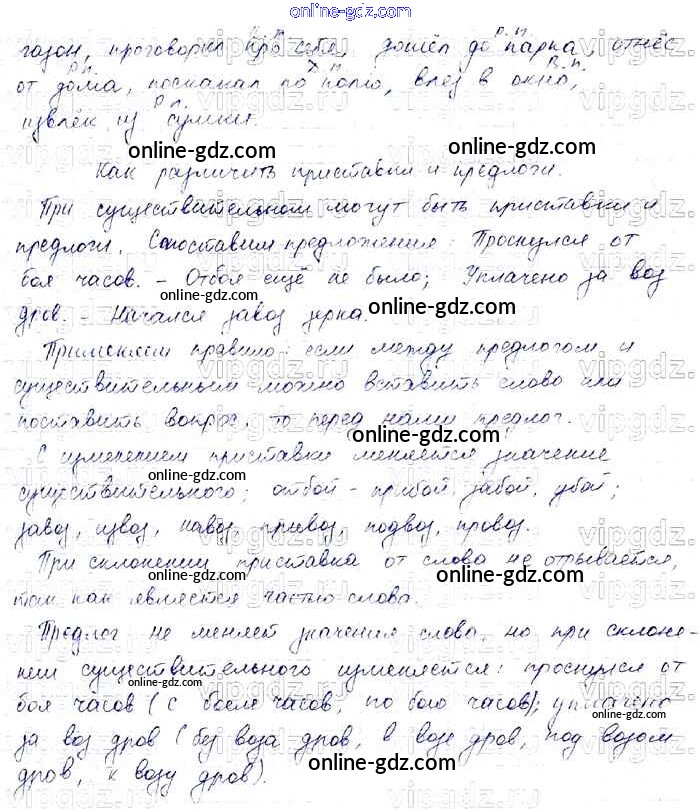 online-gdz.com
газон, проговорил про себя, дошёл до парка, отнёс
от дома, поскакал по полю, влез в окно,
извлёк из сумки.
Как различить приставки и предлоги.
При существительном могут быть приставки и
предлоги. Сопоставим предложения: Проснулся от
боя часов. - Отбоя ещё не было; Уплачено за воз
дров. - Начался завоз зерна.
Применяем правило: если между предлогом и
существительным можно вставить слово или
поставить вопрос, то перед нами предлог.
С изменением приставки меняется значение
существительного: отбой - прибой, забой, убой;
завоз, извоз, навоз, привоз, подвоз, провоз.
При склонении приставка от слова не отрывается,
так как является частью слова.
Предлог не меняет значения слова, но при склоне-
нии существительного изменяется: проснулся от
боя часов (с боем часов, по бою часов); уплачено
за воз дров (без воза дров, в возе дров, под возом
дров, к возу дров).